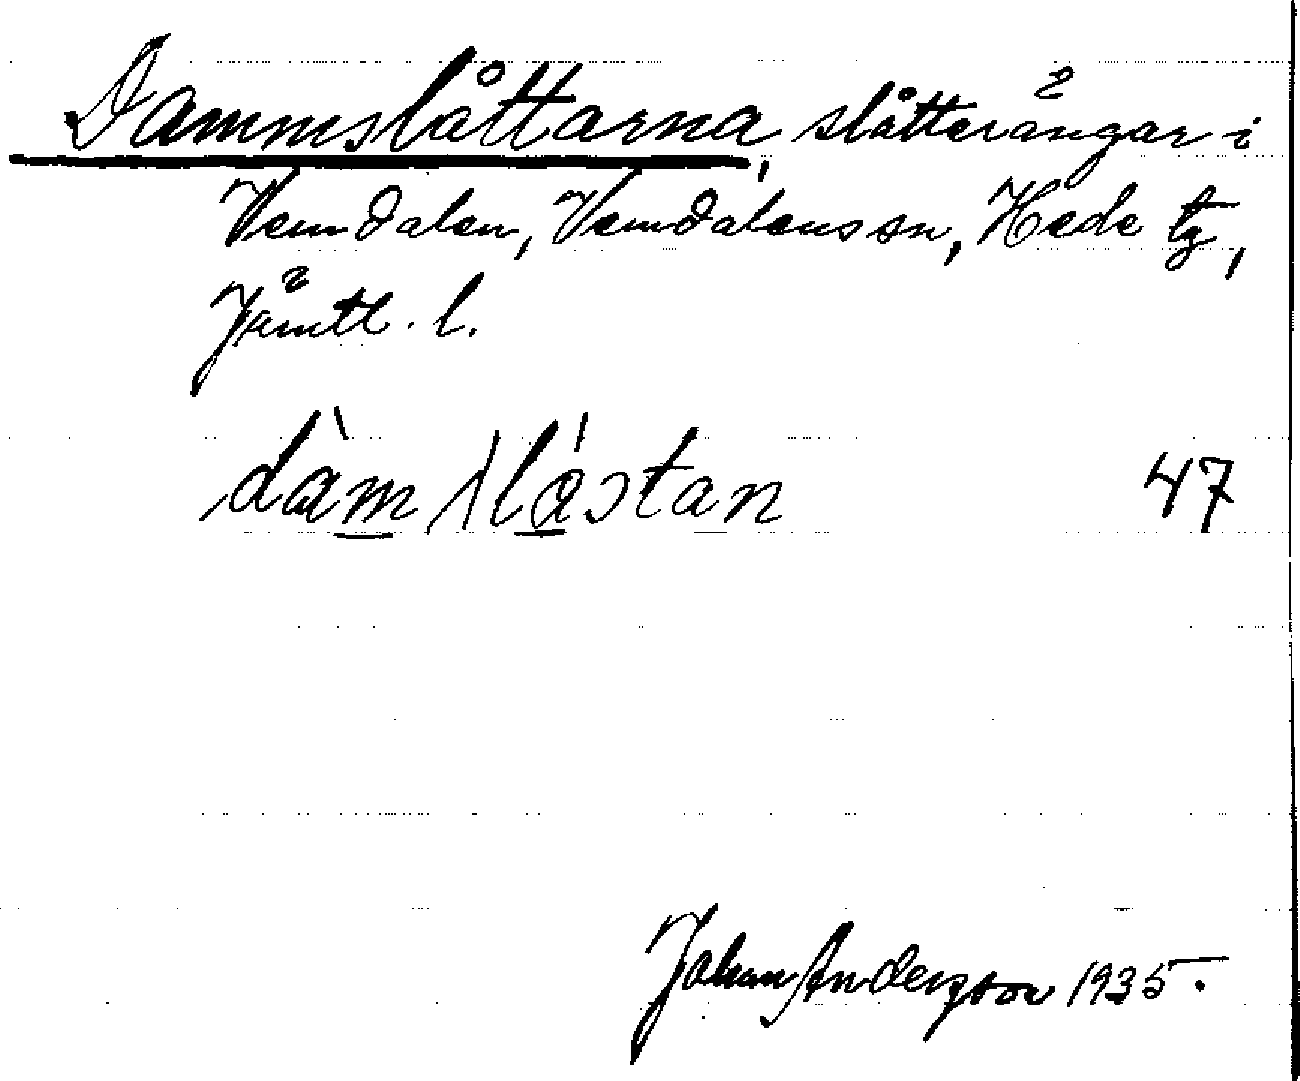 Dammslåttarna, slåtterängar i
Vemdalen, Vemdalens sn, Hede tg,
Jämtl. l.
dàm slástan 47
Johan Anderzson 1935.